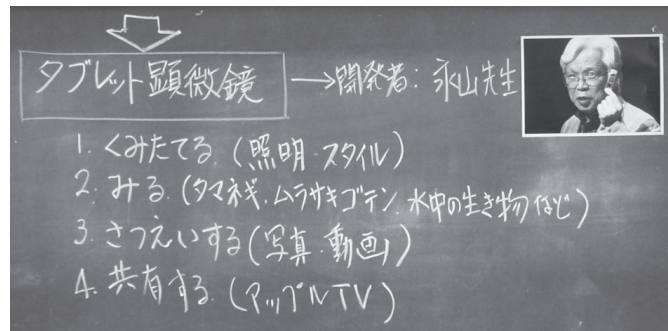 タブレット顕微鏡 → 開発者: 永山先生
1. くみたてる (照明・スタイル)
2. みる (タマネギ, ムラサキゴテン, 水中の生き物など)
3. さつえいする (写真・動画)
4. 共有する (アップルTV)